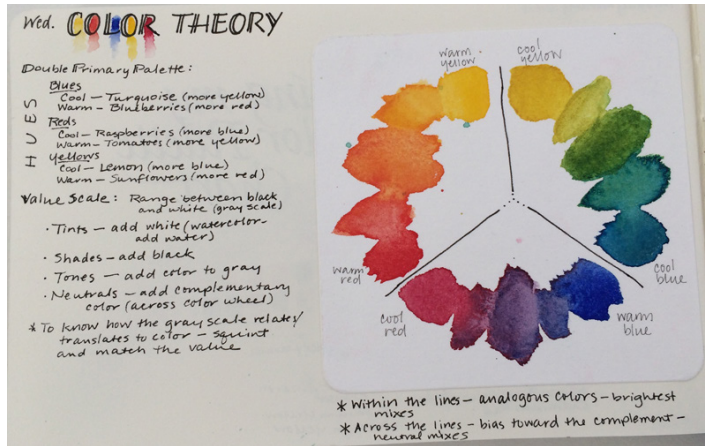 Wed. COLOR THEORY
Double Primary Palette:
HUES
Blues
Cool — Turquoise (more yellow)
Warm — Blueberries (more red)
Reds
Cool — Raspberries (more blue)
Warm — Tomatoes (more yellow)
Yellows
Cool — Lemon (more blue)
Warm — Sunflowers (more red)
Value Scale: Range between black
and white (gray scale)
· Tints — add white (watercolor —
add water)
· Shades — add black
· Tones — add color to gray
· Neutrals — add complementary
color (across color wheel)
* To know how the gray scale relates/
translates to color — squint
and match the value
warm
yellow
cool
yellow
warm
red
cool
blue
cool
red
warm
blue
* Within the lines — analogous colors — brightest
mixes
* Across the lines — bias toward the complement —
neutral mixes